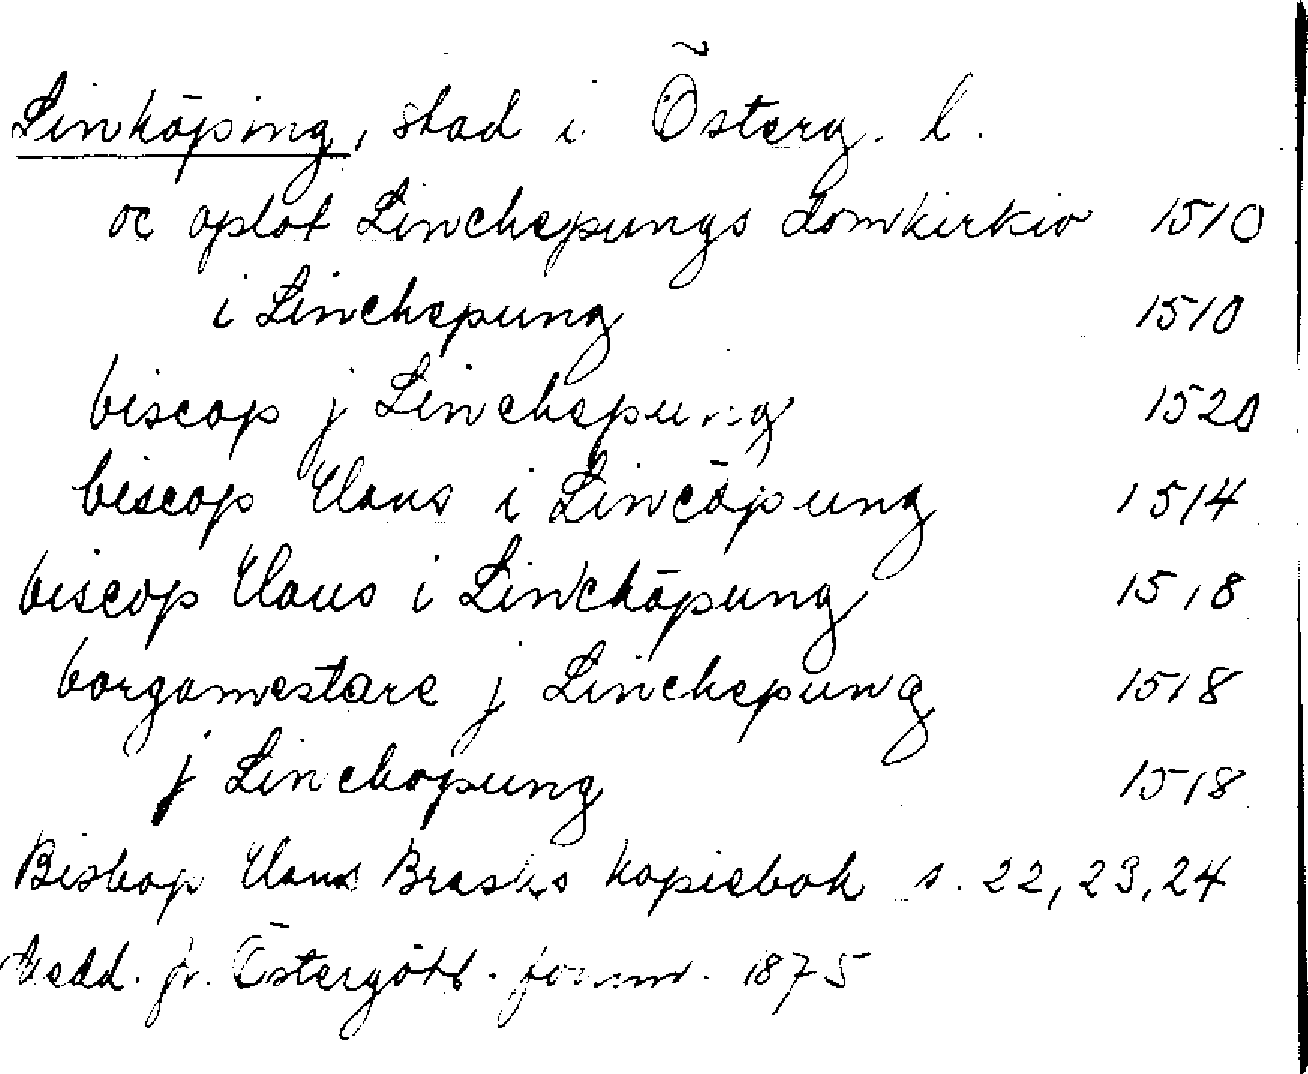 Linköping, stad i Österg. l.
oc oplot Linchepungs domkirkio 1510
i Linchepung 1510
biscop j Linchepung 1520
biscop Hans i Lincöpung 1514
biscop Hans i Linchöpung 1518
borgamestare j Linchepung 1518
j Linchopung 1518
Biskop Hans Brasks kopiebok s. 22, 23, 24
Medd. fr. Östergötl. fornm. 1875